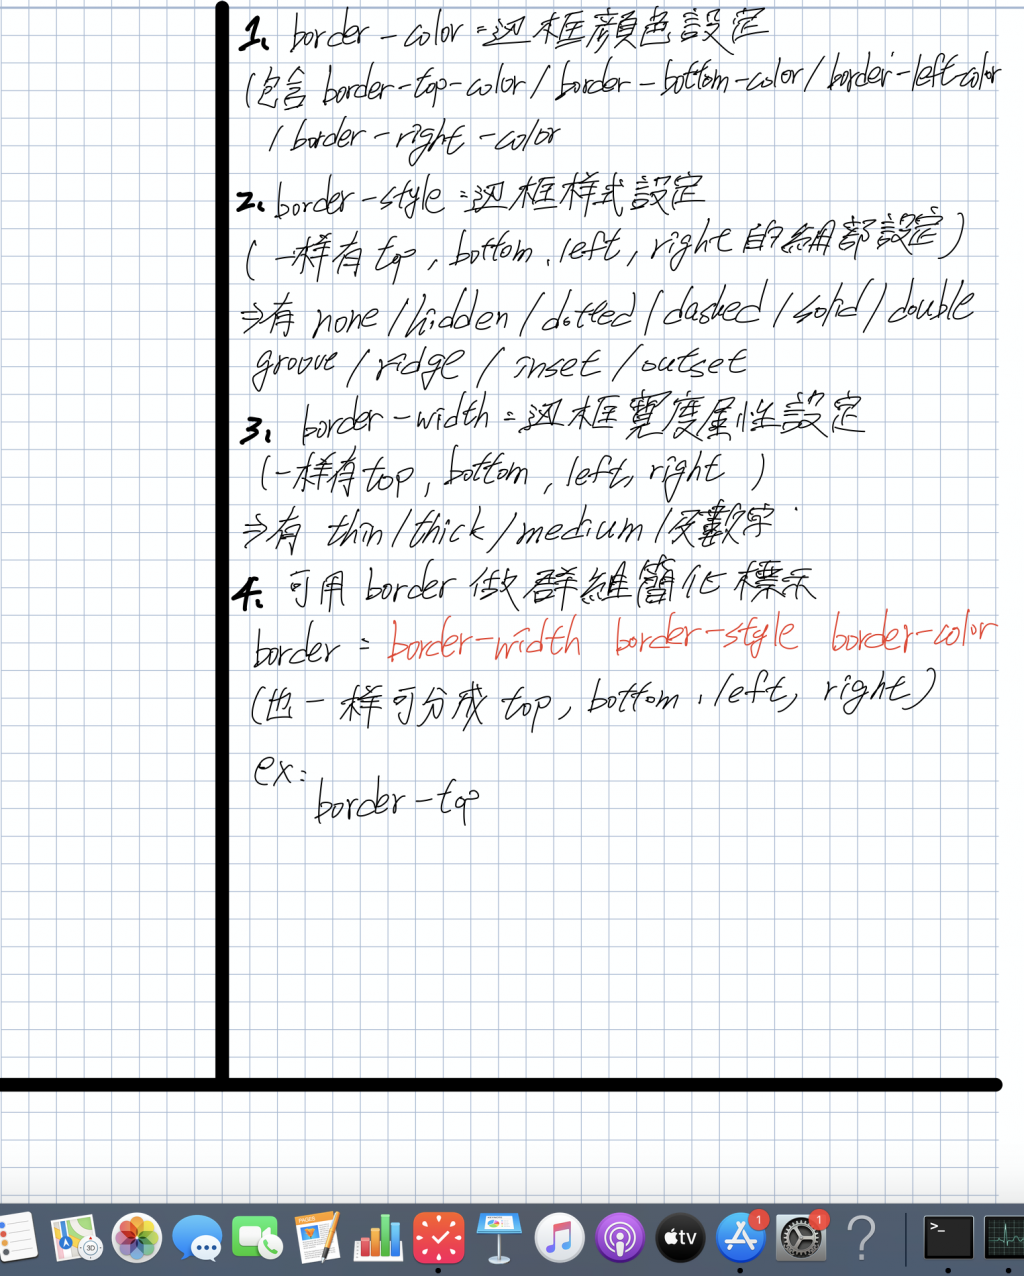 1. border-color = 边框顏色設定
(包含 border-top-color / border-bottom-color / border-left-color
/ border-right-color
2. border-style = 边框样式設定
(一样有 top, bottom, left, right 的細部設定)
⇒有 none / hidden / dotted / dashed / solid / double
groove / ridge / inset / outset
3. border-width = 边框寬度屬性設定
(一样有 top, bottom, left, right )
⇒有 thin / thick / medium / 及數字
4. 可用 border 做群組簡化標示
border = border-width border-style border-color
(也一样可分成 top, bottom, left, right)
ex:
border-top
3D
PAGES
tv
1
1
?
>_